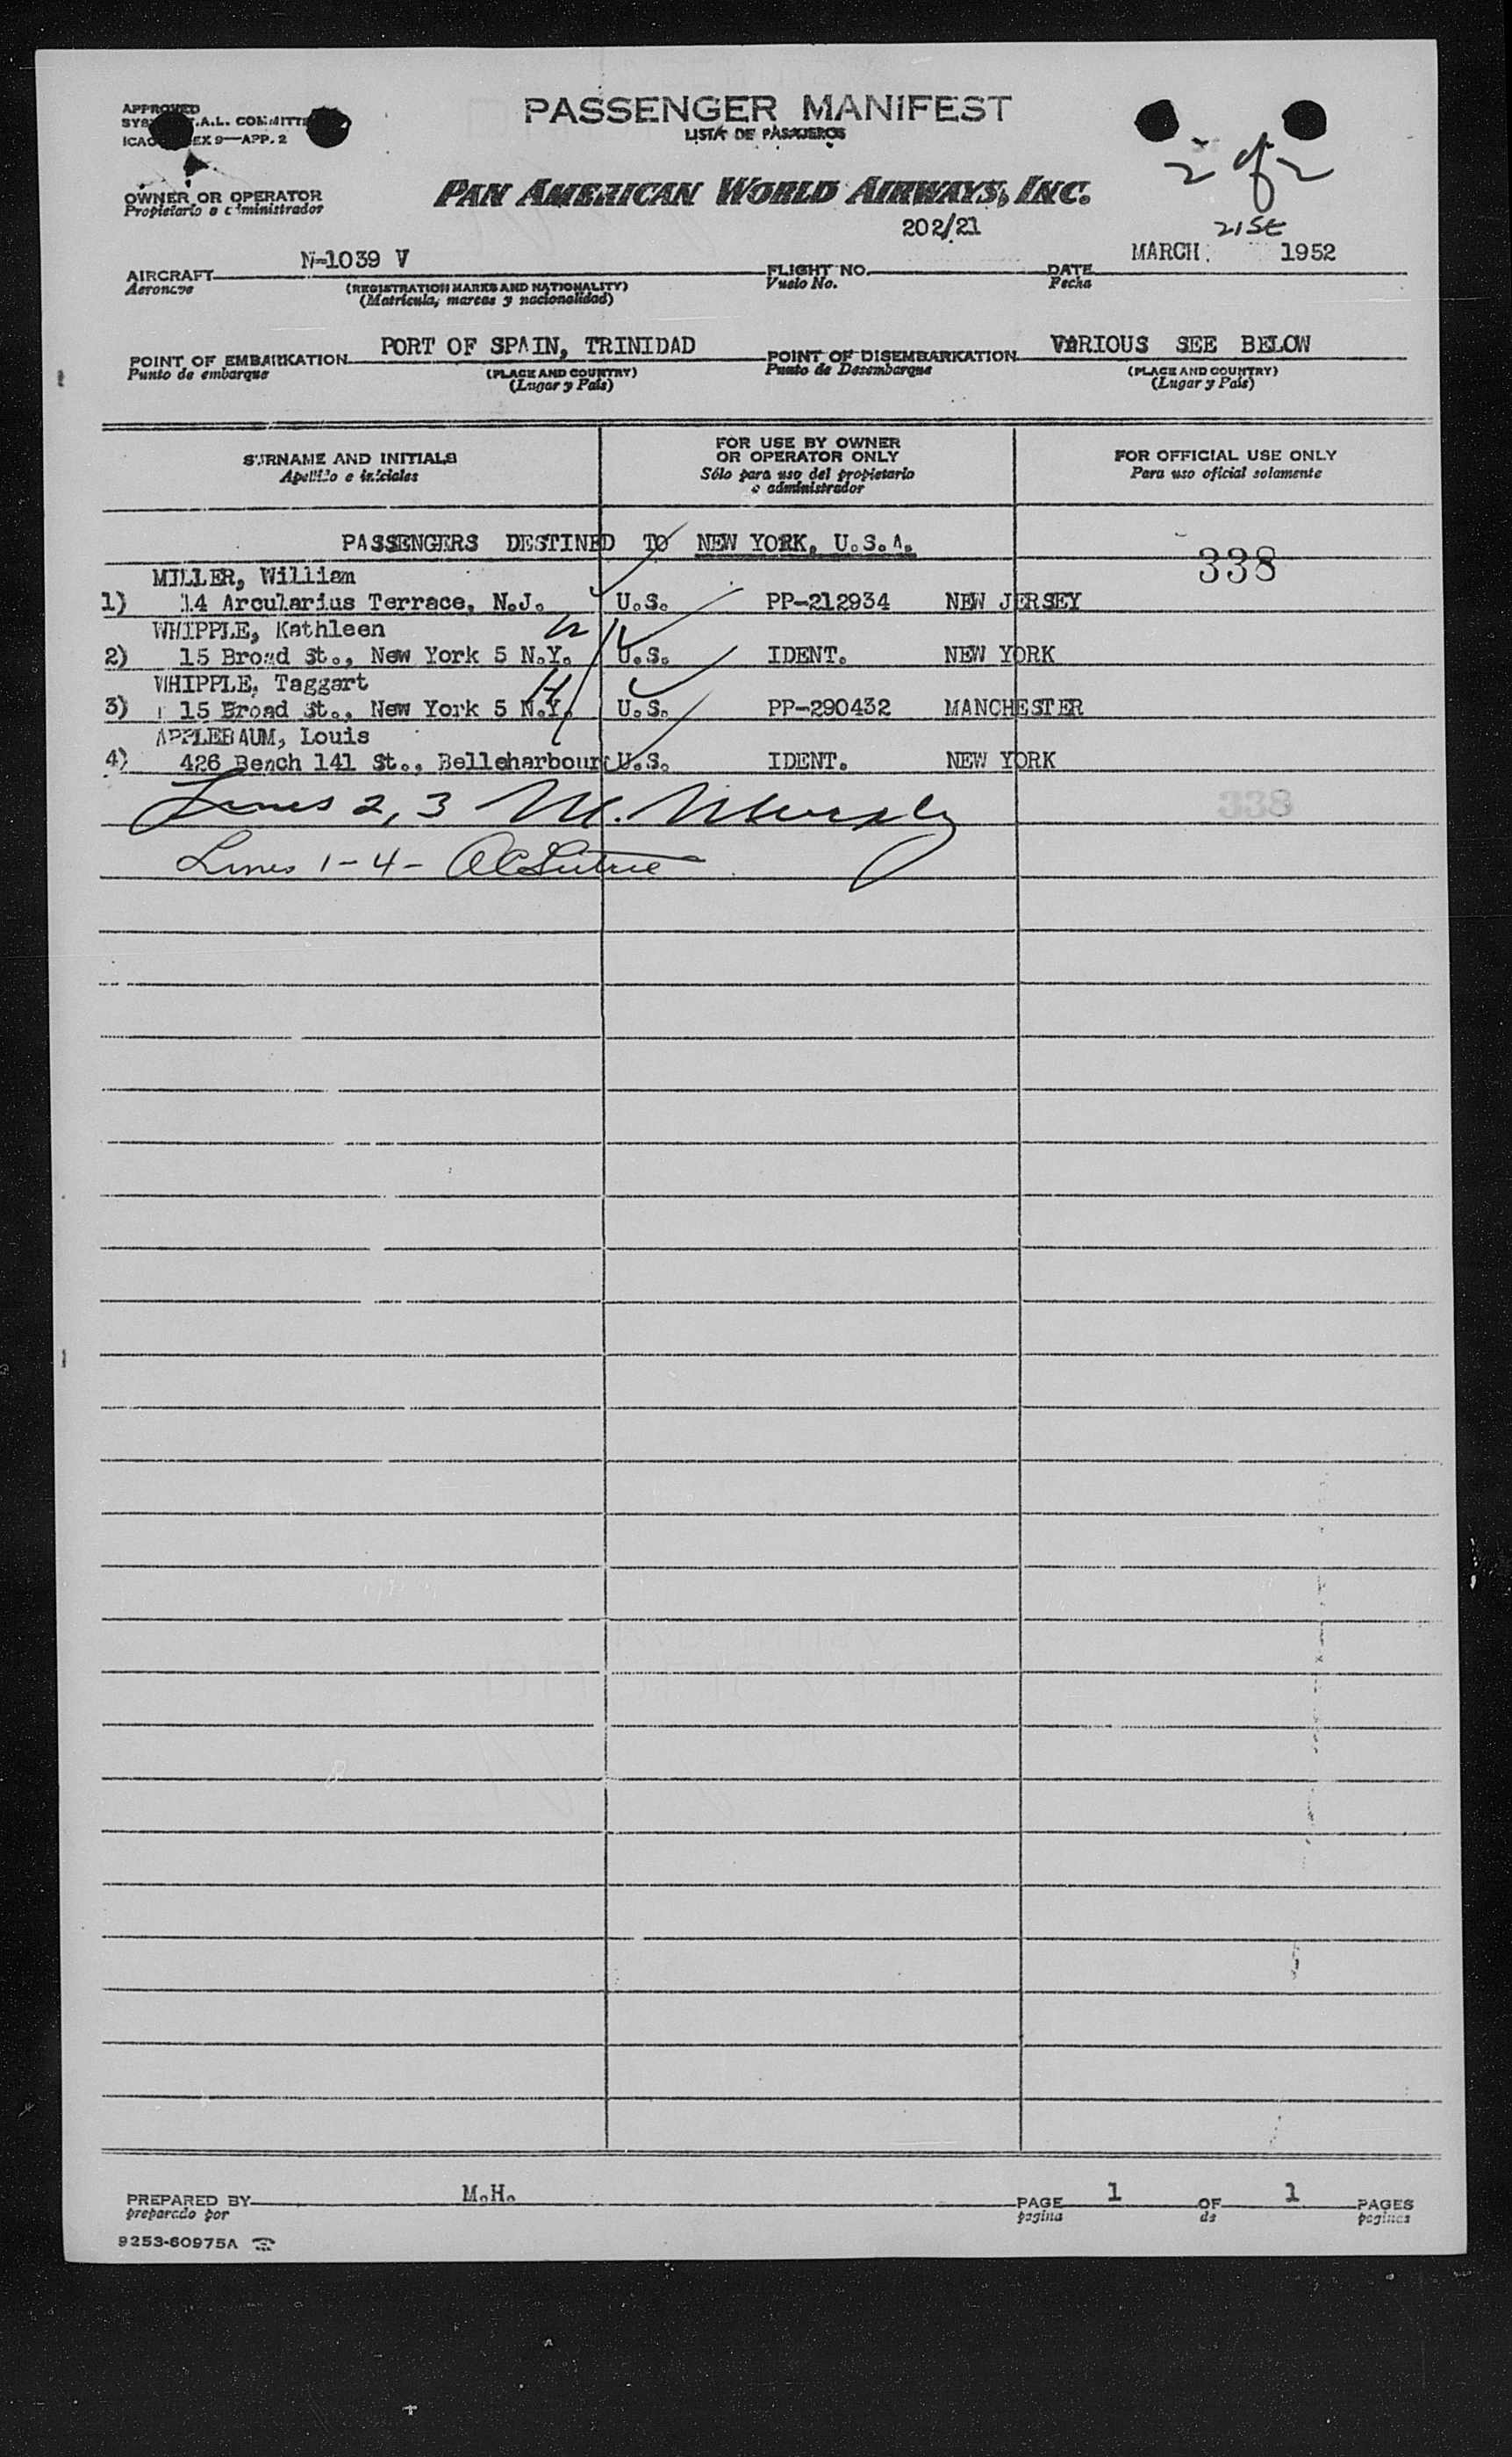 APPROVED
PASSENGER MANIFEST
.A.L. COMMITTE
LISTA DE PASAJEROS
ICAO EX 9—APP. 2
2 of 2
OWNER OR OPERATOR
Propietario o administrador
PAN AMERICAN WORLD AIRWAYS, INC.
202/21
21st
N-1039 V
MARCH 1952
AIRCRAFT
FLIGHT NO.
DATE
Aeronave
(REGISTRATION MARKS AND NATIONALITY)
Vuelo No.
Fecha
(Matrícula, marcas y nacionalidad)
PORT OF SPAIN, TRINIDAD
VARIOUS SEE BELOW
POINT OF EMBARKATION
POINT OF DISEMBARKATION
Punto de embarque
(PLACE AND COUNTRY)
Punto de Desembarque
(PLACE AND COUNTRY)
(Lugar y País)
(Lugar y País)
SURNAME AND INITIALS
Apellido e iniciales
FOR USE BY OWNER
OR OPERATOR ONLY
Sólo para uso del propietario
o administrador
FOR OFFICIAL USE ONLY
Para uso oficial solamente
PASSENGERS DESTINED TO NEW YORK, U.S.A.
338
MILLER, William
1) 14 Arcularius Terrace, N.J. U.S. PP-212934 NEW JERSEY
WHIPPLE, Kathleen W
2) 15 Broad St., New York 5 N.Y. U.S. IDENT. NEW YORK
WHIPPLE, Taggart H
3) 15 Broad St., New York 5 N.Y. U.S. PP-290432 MANCHESTER
APPLEBAUM, Louis
4) 426 Beach 141 St., Belleharbour U.S. IDENT. NEW YORK
Lines 2, 3 M. Murphy
338
Lines 1-4-
M.H.
1
1
PREPARED BY
PAGE
OF
PAGES
preparado por
pagina
de
paginas
9253-60975A